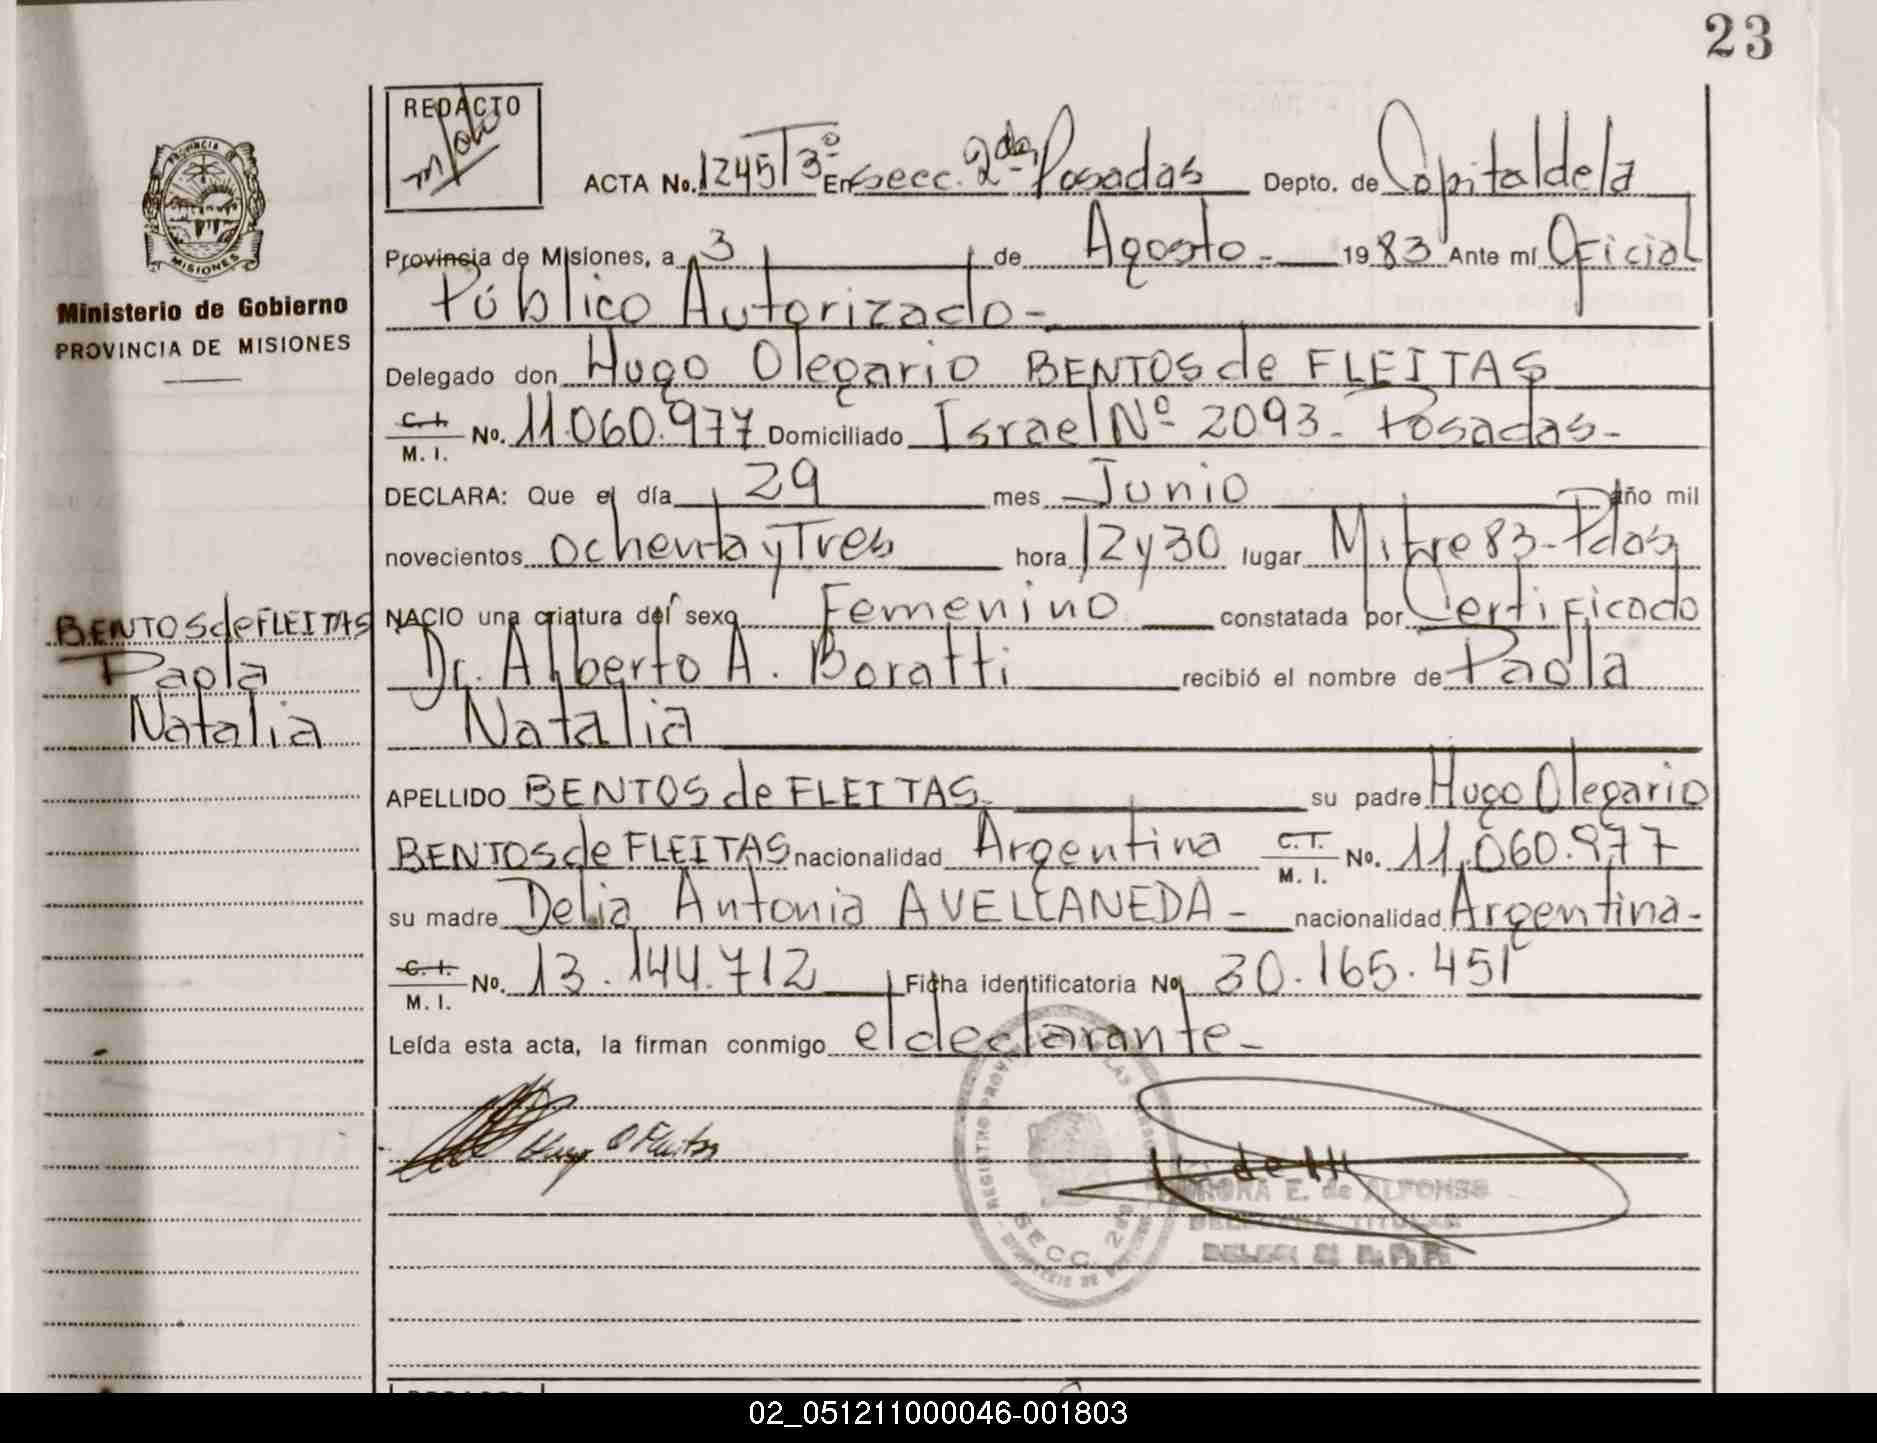 23
REDACTO
ACTA No. 1245 T 3º En secc. 2da Posadas Depto. de Capital de la
Provincia de Misiones, a 3 de Agosto - 1983 Ante mí Oficial
Público Autorizado -
Delegado don Hugo Olegario BENTOS de FLEITAS
C. I. M. I. No. 11.060.977 Domiciliado Israel Nº 2093 - Posadas -
DECLARA: Que el día 29 mes Junio año mil
novecientos ochenta y Tres hora 12 y 30 lugar Mitre 83 - Pdas
NACIO una criatura del sexo Femenino constatada por Certificado
Dr. Alberto A. Boratti recibió el nombre de Paola
Natalia
APELLIDO BENTOS de FLEITAS su padre Hugo Olegario
BENTOS de FLEITAS nacionalidad Argentina C. I. M. I. No. 11.060.977
su madre Delia Antonia AVELLANEDA - nacionalidad Argentina -
C. I. M. I. No. 13.144.712 Ficha identificatoria No 30.165.451
Leída esta acta, la firman conmigo el declarante -
PROVINCIA DE
MISIONES
Ministerio de Gobierno
PROVINCIA DE MISIONES
BENTOS de FLEITAS
Paola
Natalia
REGISTRO PROVINCIAL DE LAS PERSONAS
SECC. 2da
E. de ALFONSO
TITULAR
02_051211000046-001803